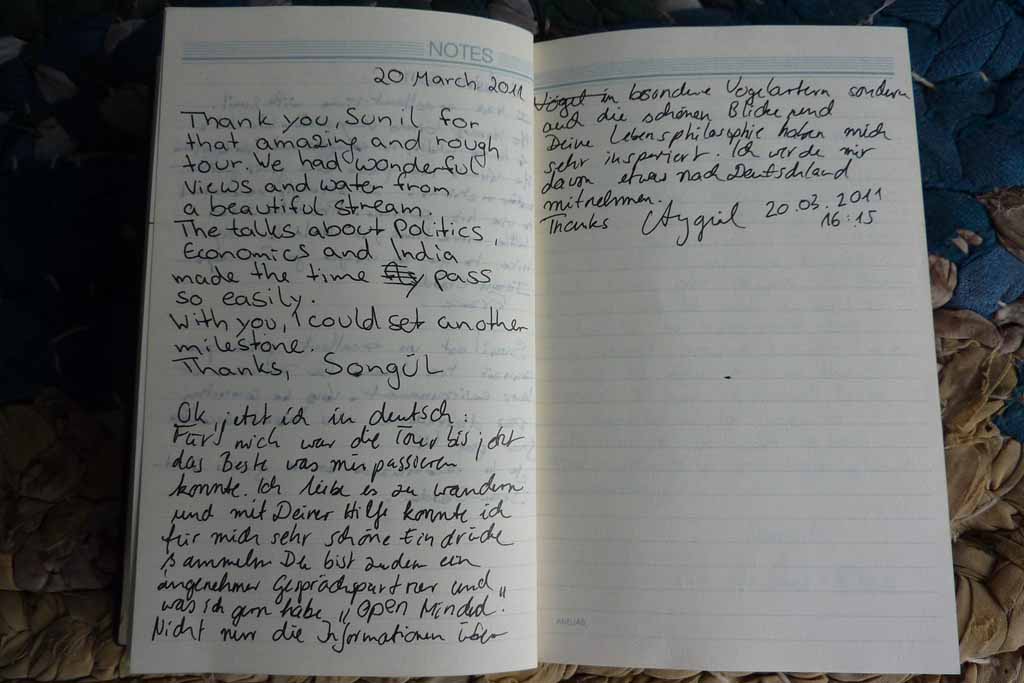 NOTES
20 March 2011
Thank you, Sunil for
that amazing and rough
tour. We had wonderful
views and water from
a beautiful stream.
The talks about Politics,
Economics and India
made the time pass
so easily.
With you, I could set another
milestone.
Thanks, Songül
Ok, jetzt ich in deutsch:
Für mich war die Tour bis jetzt
das Beste was mir passieren
konnte. Ich liebe es zu wandern
und mit Deiner Hilfe konnte ich
für mich sehr schöne Eindrücke
sammeln. Du bist zudem ein
angenehmer Gesprächspartner und
was ich gern habe "Open Minded".
Nicht nur die Informationen über
Vögel in besondere Vogelarten sondern
auch die schönen Blicke und
Deine Lebensphilosophie haben mich
sehr inspiriert. Ich werde mir
davon etwas nach Deutschland
mitnehmen.
Thanks Aygül 20.03.2011
16:15